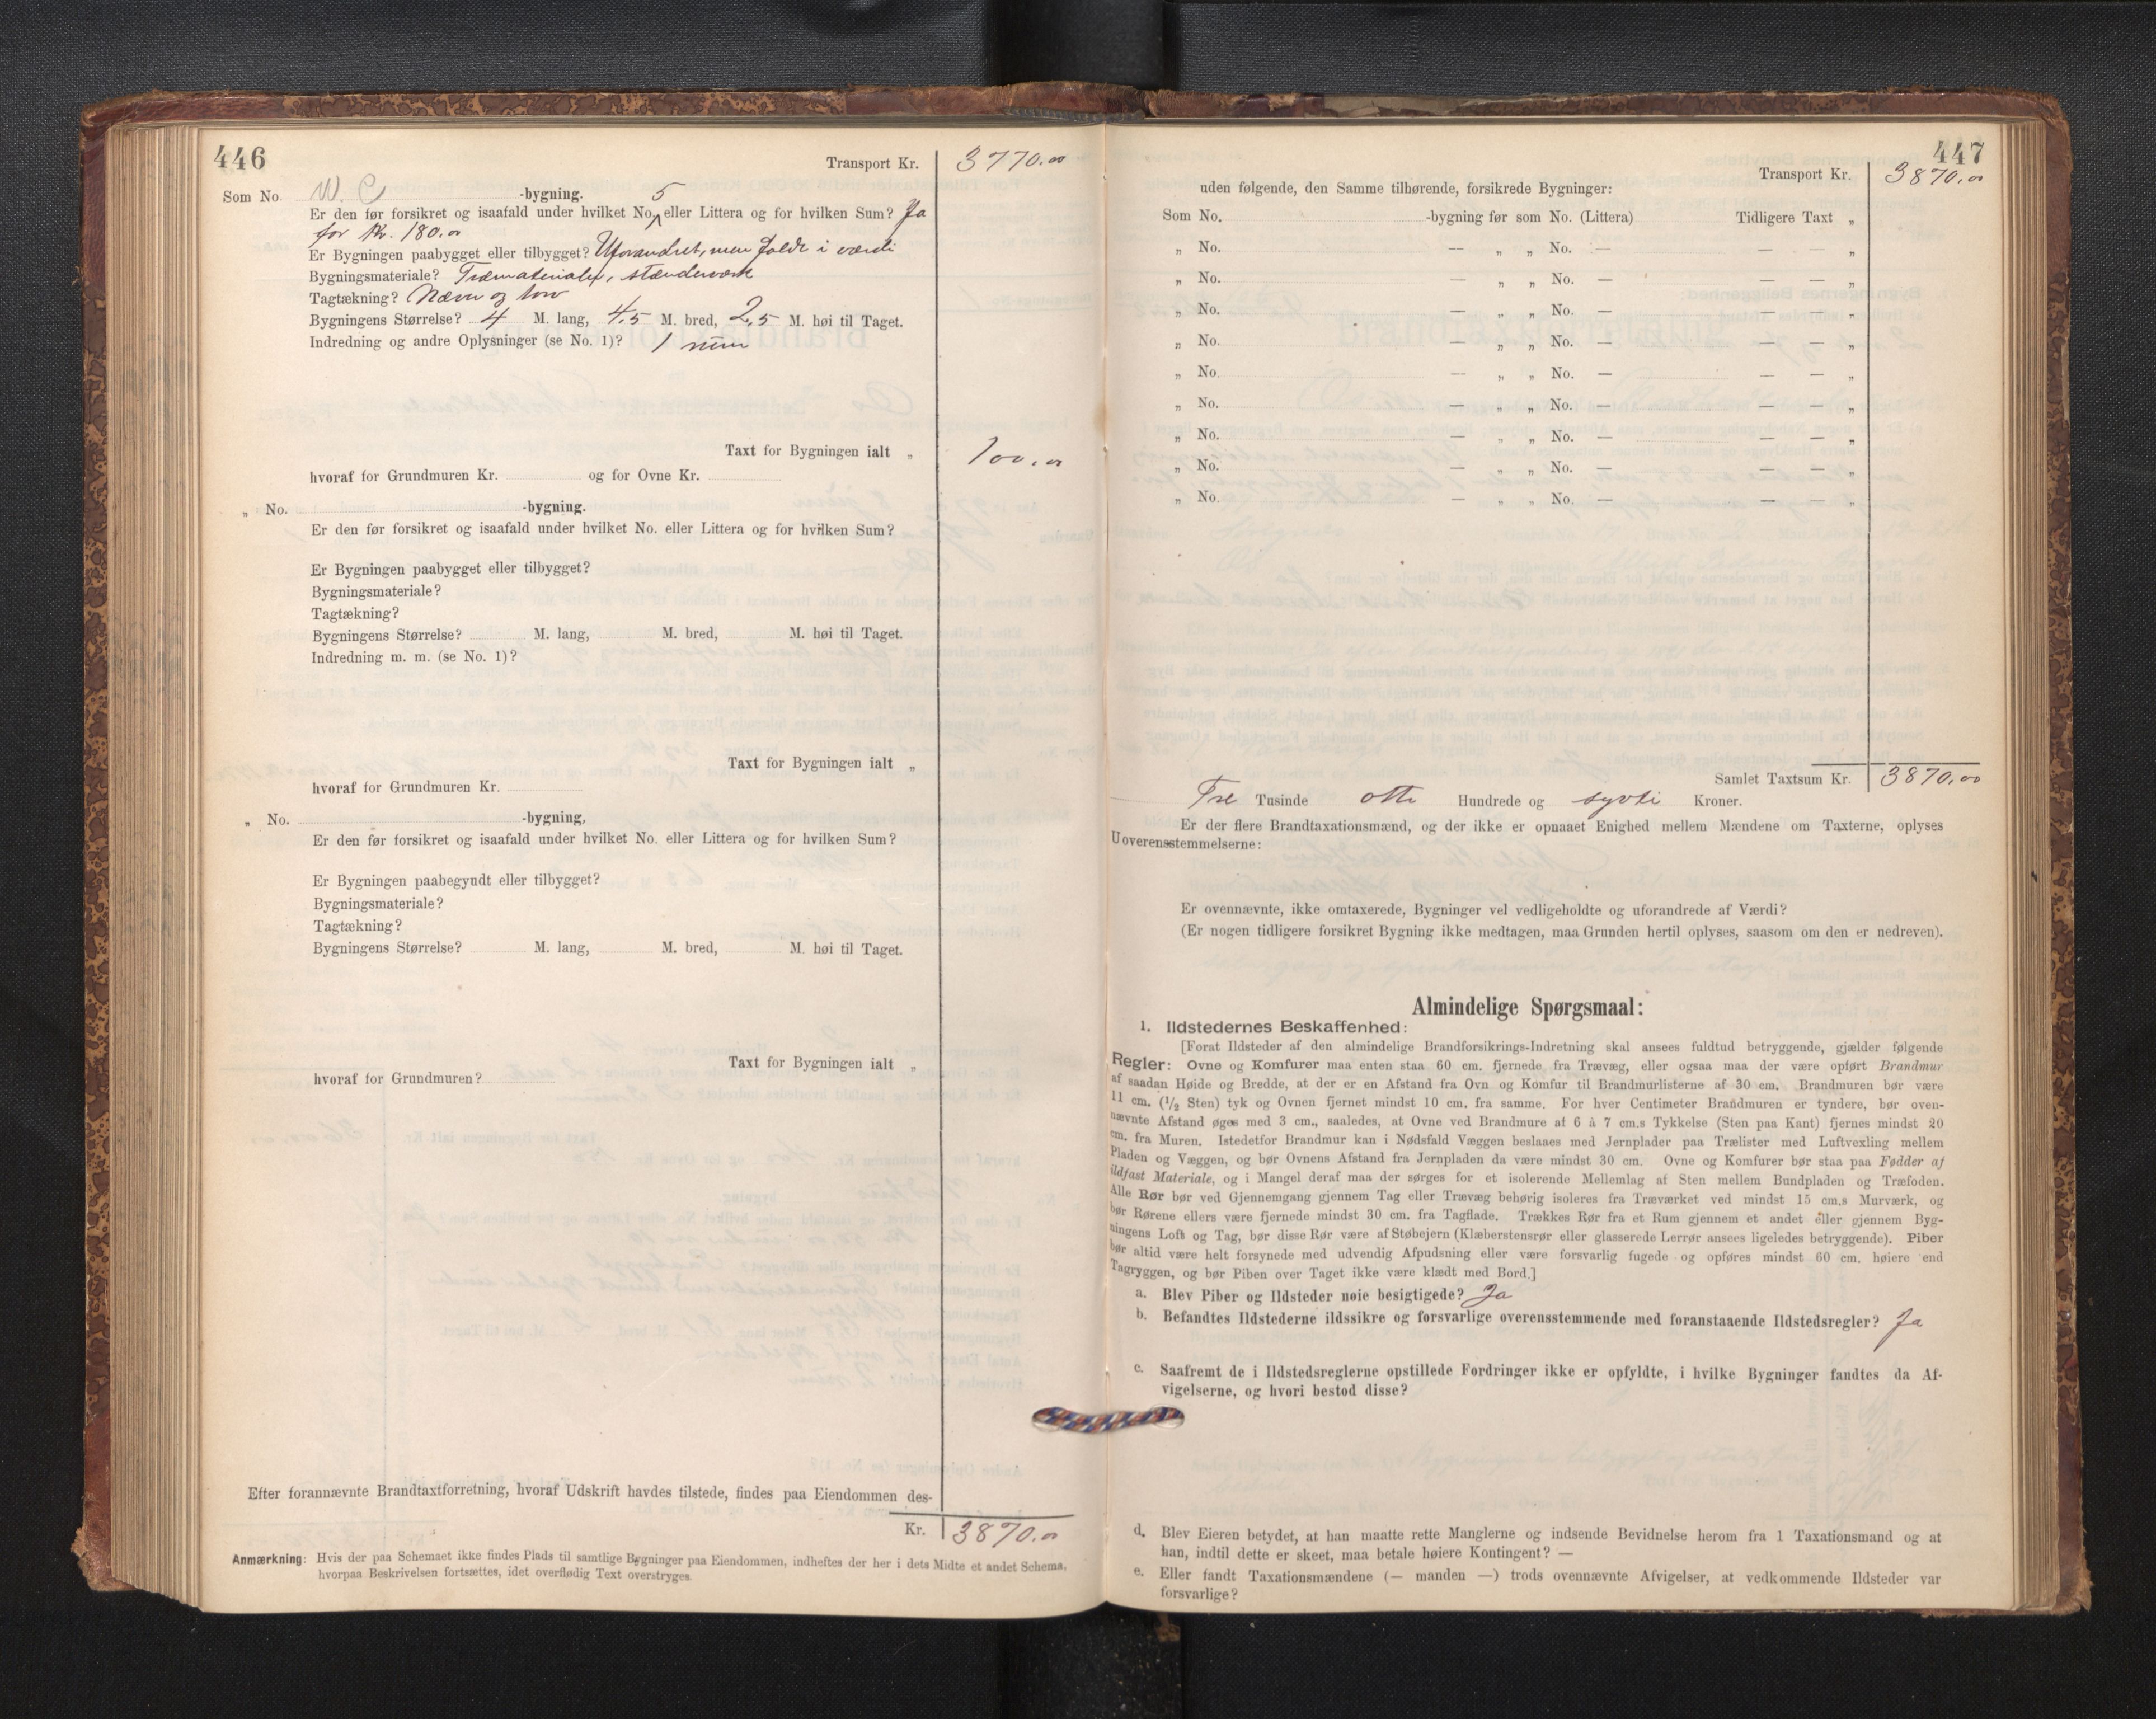 446
Transport Kr. 3770.00
Som No. W. C -bygning. 5
Er den før forsikret og isaafald under hvilket No. eller Littera og for hvilken Sum? Ja
for Kr. 180.00
Er Bygningen paabygget eller tilbygget? Uforandret, men faldt i værdi
Bygningsmateriale? Træmaterialer, stænderværk
Tagtækning? Næver og torv
Bygningens Størrelse? 4 M. lang, 4,5 M. bred, 2,5 M. høi til Taget.
Indredning og andre Oplysninger (se No. 1)? 1 rum
Taxt for Bygningen ialt „ 100.00
hvoraf for Grundmuren Kr. og for Ovne Kr.
„ No. -bygning.
Er den før forsikret og isaafald under hvilket No. eller Littera og for hvilken Sum?
Er Bygningen paabygget eller tilbygget?
Bygningsmateriale?
Tagtækning?
Bygningens Størrelse? M. lang, M. bred, M. høi til Taget.
Indredning m. m. (se No. 1)?
Taxt for Bygningen ialt „
hvoraf for Grundmuren Kr.
„ No. -bygning,
Er den før forsikret og isaafald under hvilket No. eller Littera og for hvilken Sum?
Er Bygningen paabegyndt eller tilbygget?
Bygningsmateriale?
Tagtækning?
Bygningens Størrelse? M. lang, M. bred, M. høi til Taget.
Taxt for Bygningen ialt „
hvoraf for Grundmuren?
Efter forannævnte Brandtaxtforretning, hvoraf Udskrift havdes tilstede, findes paa Eiendommen des-
Kr. 3870.00
Anmærkning: Hvis der paa Schemaet ikke findes Plads til samtlige Bygninger paa Eiendommen, indheftes der her i dets Midte et andet Schema,
hvorpaa Beskrivelsen fortsættes, idet overflødig Text overstryges.
447
Transport Kr. 3870.00
uden følgende, den Samme tilhørende, forsikrede Bygninger:
Som No. -bygning før som No. (Littera) Tidligere Taxt „
„ No. — „ „ No. — — — „
„ No. — „ „ No. — — — „
„ No. — „ „ No. — — — „
„ No. — „ „ No. — — — „
„ No. — „ „ No. — — — „
„ No. — „ „ No. — — — „
„ No. — „ „ No. — — — „
„ No. — „ „ No. — — — „
„ No. — „ „ No. — — — „
Samlet Taxtsum Kr. 3870.00
Tre Tusinde otte Hundrede og sytti Kroner.
Er der flere Brandtaxationsmænd, og der ikke er opnaaet Enighed mellem Mændene om Taxterne, oplyses
Uoverensstemmelserne:
Er ovennævnte, ikke omtaxerede, Bygninger vel vedligeholdte og uforandrede af Værdi?
(Er nogen tidligere forsikret Bygning ikke medtagen, maa Grunden hertil oplyses, saasom om den er nedreven).
Almindelige Spørgsmaal:
1. Ildstedernes Beskaffenhed:
[Forat Ildsteder af den almindelige Brandforsikrings-Indretning skal ansees fuldtud betryggende, gjælder følgende
Regler: Ovne og Komfurer maa enten staa 60 cm. fjernede fra Trævæg, eller ogsaa maa der være opført Brandmur
af saadan Høide og Bredde, at der er en Afstand fra Ovn og Komfur til Brandmurlisterne af 30 cm. Brandmuren bør være
11 cm. (1/2 Sten) tyk og Ovnen fjernet mindst 10 cm. fra samme. For hver Centimeter Brandmuren er tyndere, bør oven-
nævnte Afstand øges med 3 cm., saaledes, at Ovne ved Brandmure af 6 à 7 cm.s Tykkelse (Sten paa Kant) fjernes mindst 20
cm. fra Muren. Istedetfor Brandmur kan i Nødsfald Væggen beslaaes med Jernplader paa Trælister med Luftvexling mellem
Pladen og Væggen, og bør Ovnens Afstand fra Jernpladen da være mindst 30 cm. Ovne og Komfurer bør staa paa Fødder af
ildfast Materiale, og i Mangel deraf maa der sørges for et isolerende Mellemlag af Sten mellem Bundpladen og Træfoden.
Alle Rør bør ved Gjennemgang gjennem Tag eller Trævæg behørig isoleres fra Træværket ved mindst 15 cm.s Murværk, og
bør Rørene ellers være fjernede mindst 30 cm. fra Tagflade. Trækkes Rør fra et Rum gjennem et andet eller gjennem Byg-
ningens Loft og Tag, bør disse Rør være af Støbejern (Klæberstensrør eller glasserede Lerrør ansees ligeledes betryggende). Piber
bør altid være helt forsynede med udvendig Afpudsning eller være forsvarlig fugede og opføres mindst 60 cm. høiere end
Tagryggen, og bør Piben over Taget ikke være klædt med Bord.]
a. Blev Piber og Ildsteder nøie besigtigede? Ja
b. Befandtes Ildstederne ildssikre og forsvarlige overensstemmende med foranstaaende Ildstedsregler? Ja
c. Saafremt de i Ildstedsreglerne opstillede Fordringer ikke er opfyldte, i hvilke Bygninger fandtes da Af-
vigelserne, og hvori bestod disse?
d. Blev Eieren betydet, at han maatte rette Manglerne og indsende Bevidnelse herom fra 1 Taxationsmand og at
han, indtil dette er skeet, maa betale høiere Kontingent? —
e. Eller fandt Taxationsmændene (— manden —) trods ovennævnte Afvigelser, at vedkommende Ildsteder var
forsvarlige?